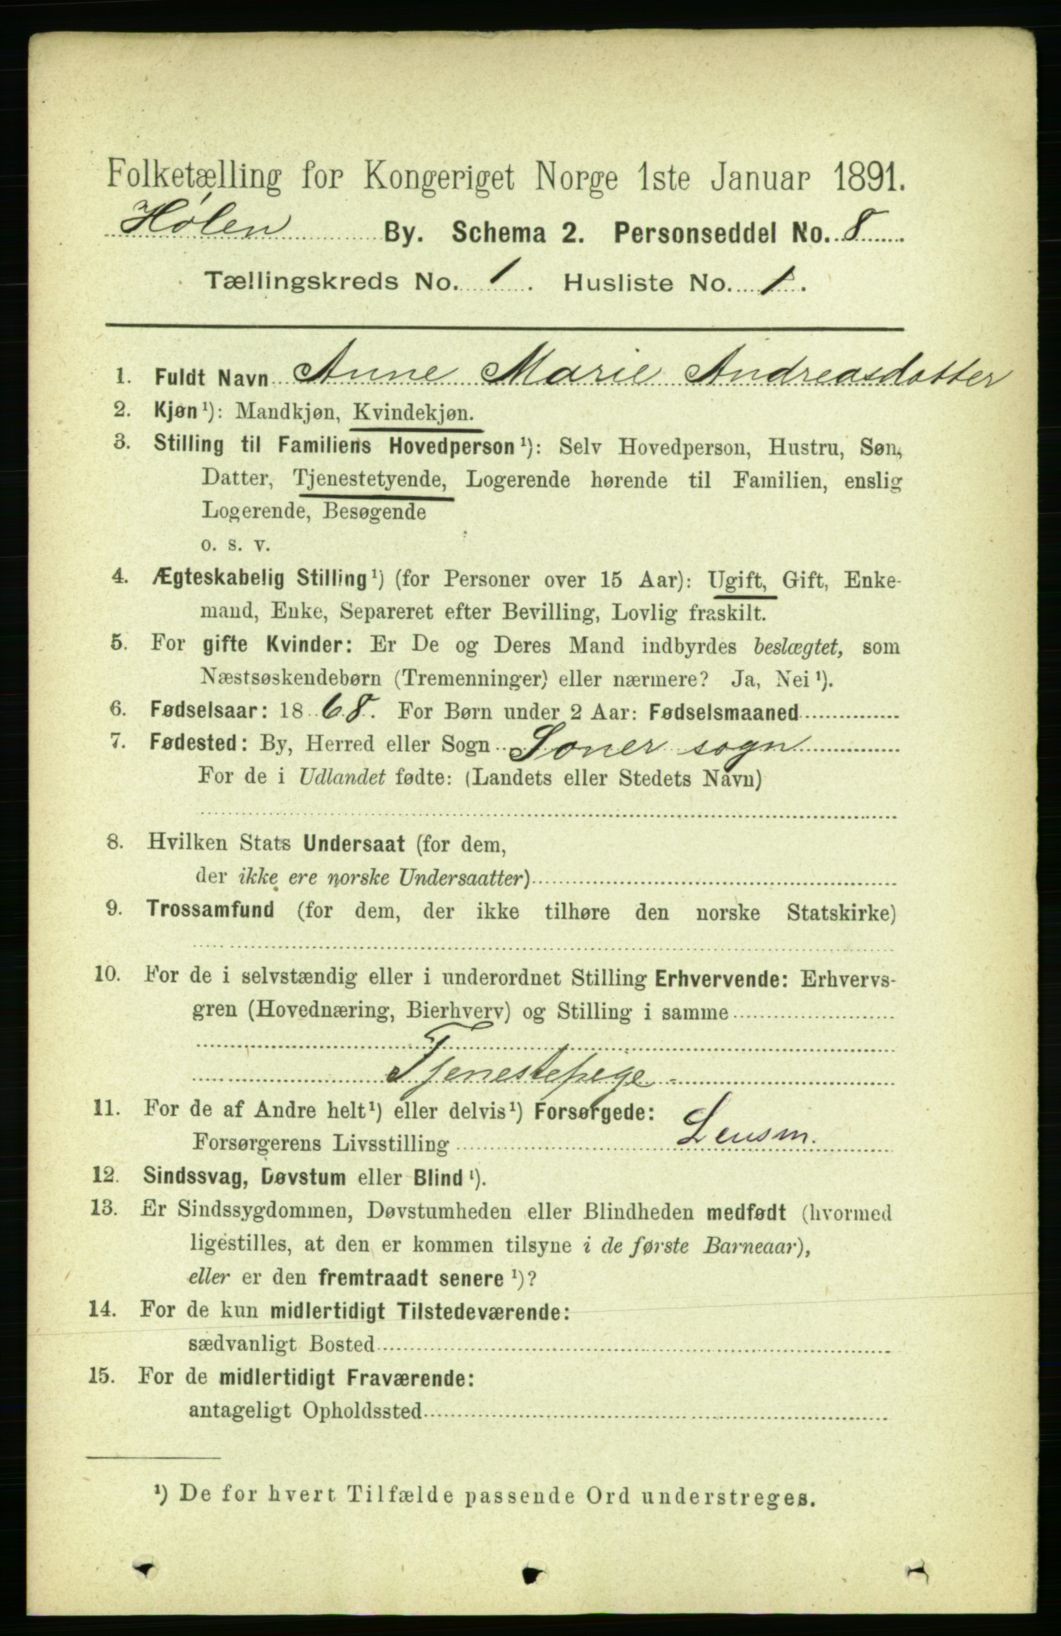 Folketælling for Kongeriget Norge 1ste Januar 1891.
Hølen By. Schema 2. Personseddel No. 8
Tællingskreds No. 1. Husliste No. 1.
1. Fuldt Navn Anne Marie Andreasdatter
2. Kjøn¹): Mandkjøn, Kvindekjøn.
3. Stilling til Familiens Hovedperson¹): Selv Hovedperson, Hustru, Søn,
Datter, Tjenestetyende, Logerende hørende til Familien, enslig
Logerende, Besøgende
o. s. v.
4. Ægteskabelig Stilling¹) (for Personer over 15 Aar): Ugift, Gift, Enke-
mand, Enke, Separeret efter Bevilling, Lovlig fraskilt.
5. For gifte Kvinder: Er De og Deres Mand indbyrdes beslægtet, som
Næstsøskendebørn (Tremenninger) eller nærmere? Ja, Nei¹).
6. Fødselsaar: 1868. For Børn under 2 Aar: Fødselsmaaned
7. Fødested: By, Herred eller Sogn Soner sogn
For de i Udlandet fødte: (Landets eller Stedets Navn)
8. Hvilken Stats Undersaat (for dem,
der ikke ere norske Undersaatter)
9. Trossamfund (for dem, der ikke tilhøre den norske Statskirke)
10. For de i selvstændig eller i underordnet Stilling Erhvervende: Erhvervs-
gren (Hovednæring, Bierhverv) og Stilling i samme
Tjenestepige
11. For de af Andre helt¹) eller delvis¹) Forsørgede:
Forsørgerens Livsstilling Lensm.
12. Sindssvag, Døvstum eller Blind¹).
13. Er Sindssygdommen, Døvstumheden eller Blindheden medfødt (hvormed
ligestilles, at den er kommen tilsyne i de første Barneaar),
eller er den fremtraadt senere¹)?
14. For de kun midlertidigt Tilstedeværende:
sædvanligt Bosted
15. For de midlertidigt Fraværende:
antageligt Opholdssted
¹) De for hvert Tilfælde passende Ord understreges.